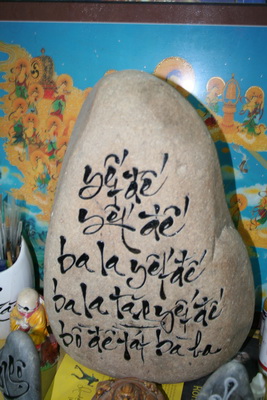 yết đế
yết đế
ba la yết đế
ba la tăng yết đế
bồ đề tát bà ha